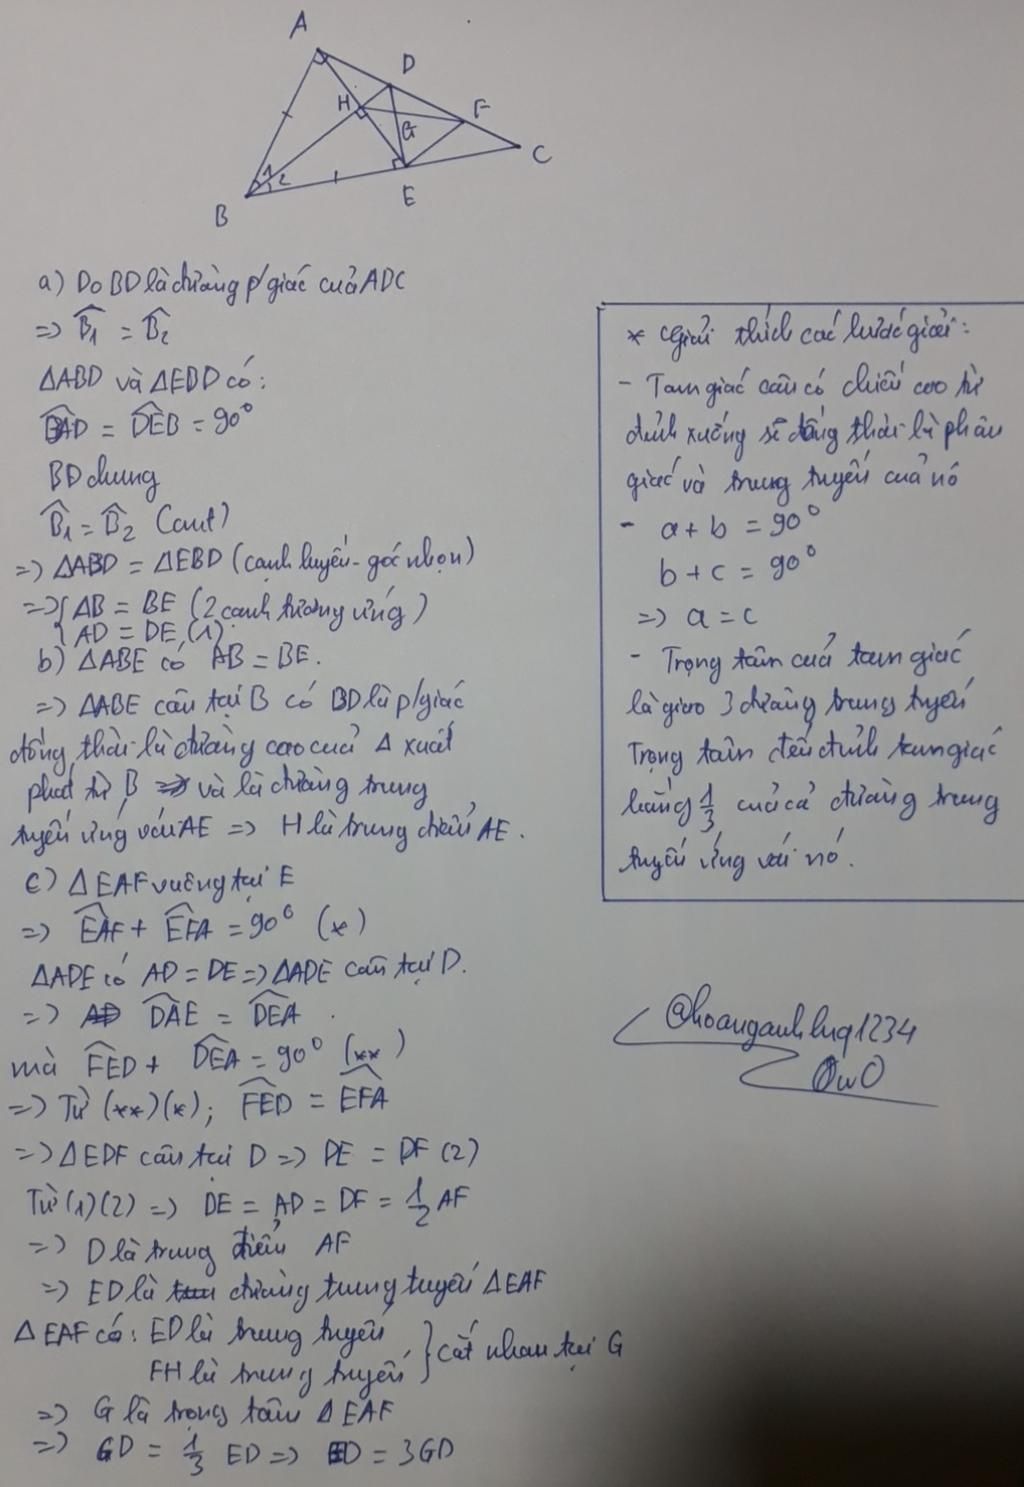 A
D
H
F
G
C
1
2
E
B
a) Do BD là đường p/giác của ADC
=> B̂₁ = B̂₂
ΔABD và ΔEDD có:
BÂD = DÊB = 90°
BD chung
B̂₁ = B̂₂ (cmt)
=> ΔABD = ΔEBD (cạnh huyền - góc nhọn)
=> { AB = BE (2 cạnh tương ứng)
{ AD = DE (1)
b) ΔABE có AB = BE.
=> ΔABE cân tại B có BD là p/giác
đồng thời là đường cao của Δ xuất
phát từ B và là đường trung
tuyến ứng với AE => H là trung điểm AE.
c) ΔEAF vuông tại E
=> EÂF + EF̂A = 90° (*)
ΔADE có AD = DE => ΔADE cân tại D.
=> DÂE = DÊA.
mà FÊD + DÊA = 90° (**)
=> Từ (**)(*); FÊD = EF̂A
=> ΔEDF cân tại D => DE = DF (2)
Từ (1)(2) => DE = AD = DF = 1/2 AF
=> D là trung điểm AF
=> ED là đường trung tuyến ΔEAF
ΔEAF có: ED là trung tuyến
FH là trung tuyến } cắt nhau tại G
=> G là trọng tâm ΔEAF
=> GD = 1/3 ED => ED = 3GD
* Giải thích các bước giải:
- Tam giác cân có chiều cao từ
đỉnh xuống sẽ đồng thời là phân
giác và trung tuyến của nó
- a + b = 90°
b + c = 90°
=> a = c
- Trọng tâm của tam giác
là giao 3 đường trung tuyến
Trọng tâm đến đỉnh tam giác
bằng 1/3 của cả đường trung
tuyến ứng với nó.
@hoanganhluq1234
OwO